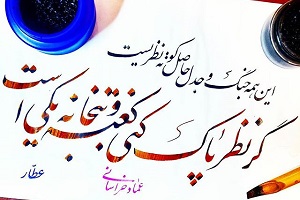 این همه جنگ و جدل حاصل کوته نظریست
گر نظر پاک کنی کعبه و بتخانه یکی است
عماد خراسانی
عطار